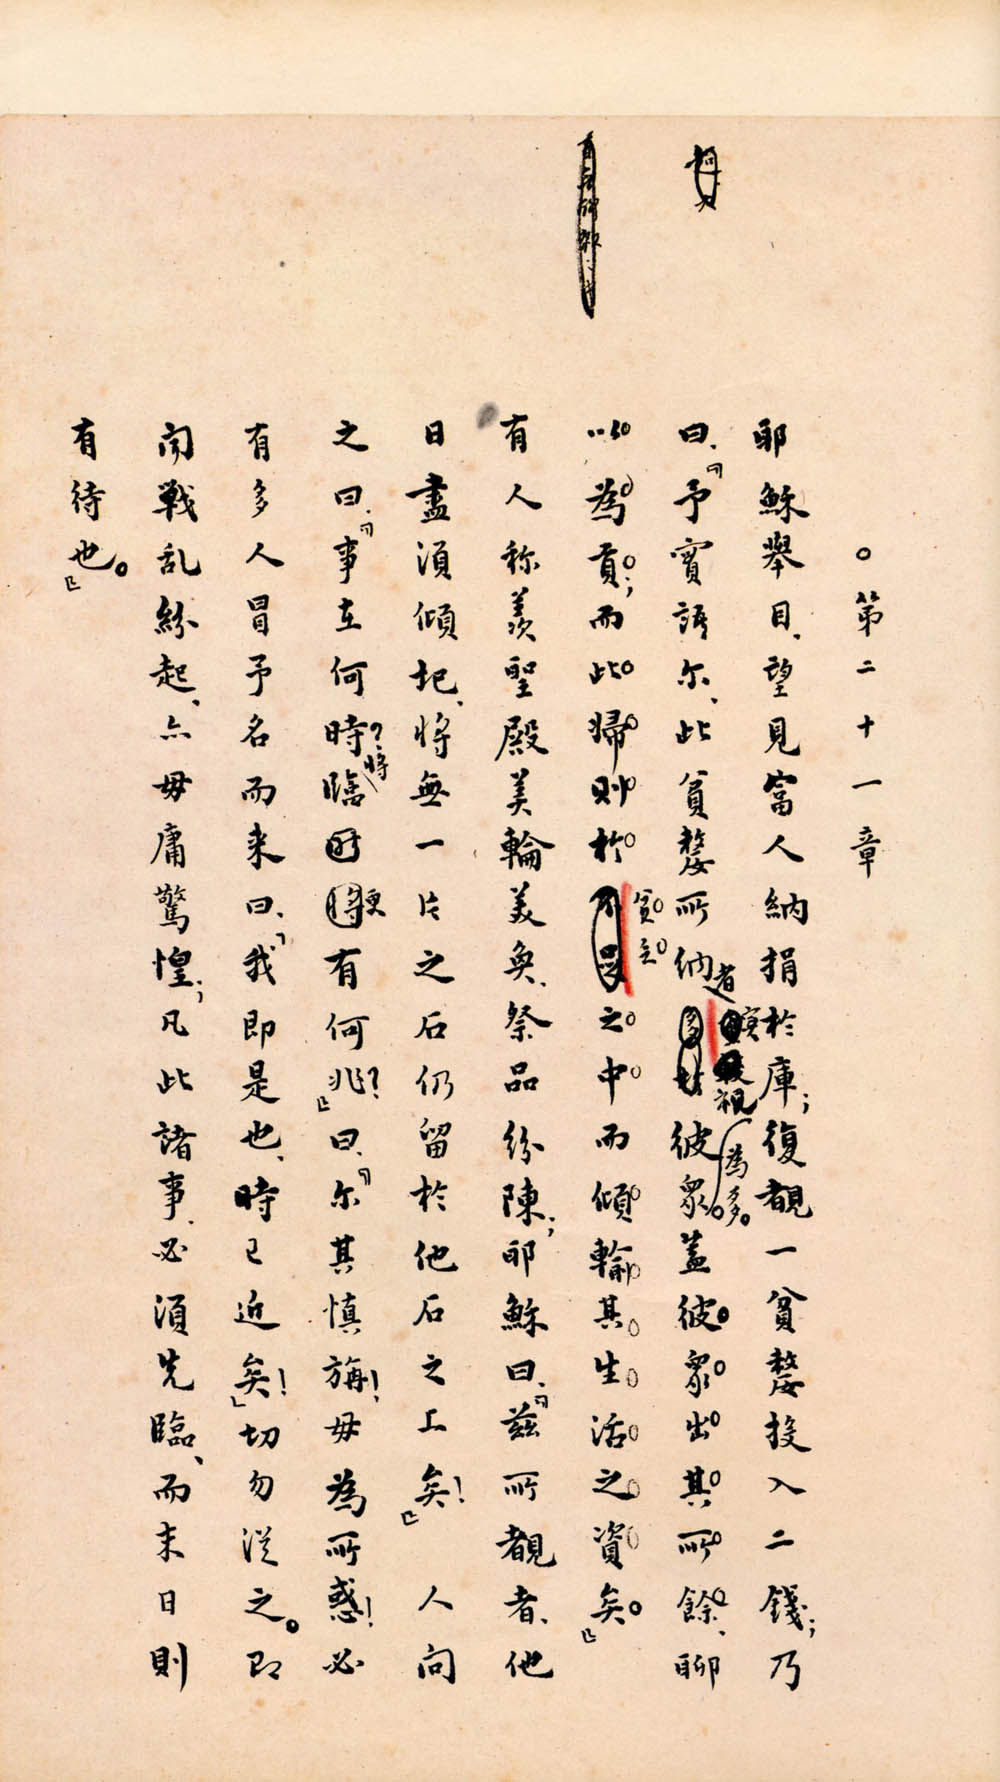 。第二十一章
耶穌舉目、望見富人納捐於庫；復覩一貧嫠投入二錢；乃
曰、『予實語尔、此貧嫠所納者、實視彼眾為多。蓋彼眾出其所餘、聊
以為貢；而此婦則於貧乏之中而傾輸其生活之資矣。』
有人称羨聖殿美輪美奐、祭品紛陳；耶穌曰、『茲所覩者、他
日盡須傾圮、將無一片之石仍留於他石之上矣！』 人向
之曰、『事在何時？將臨時更有何兆？』曰、『尔其慎旃！毋為所惑！必
有多人冒予名而来曰、「我即是也、時已迫矣！」切勿從之。即
聞戰乱紛起、亦毋庸驚惶；凡此諸事、必須先臨、而末日則
有待也。』